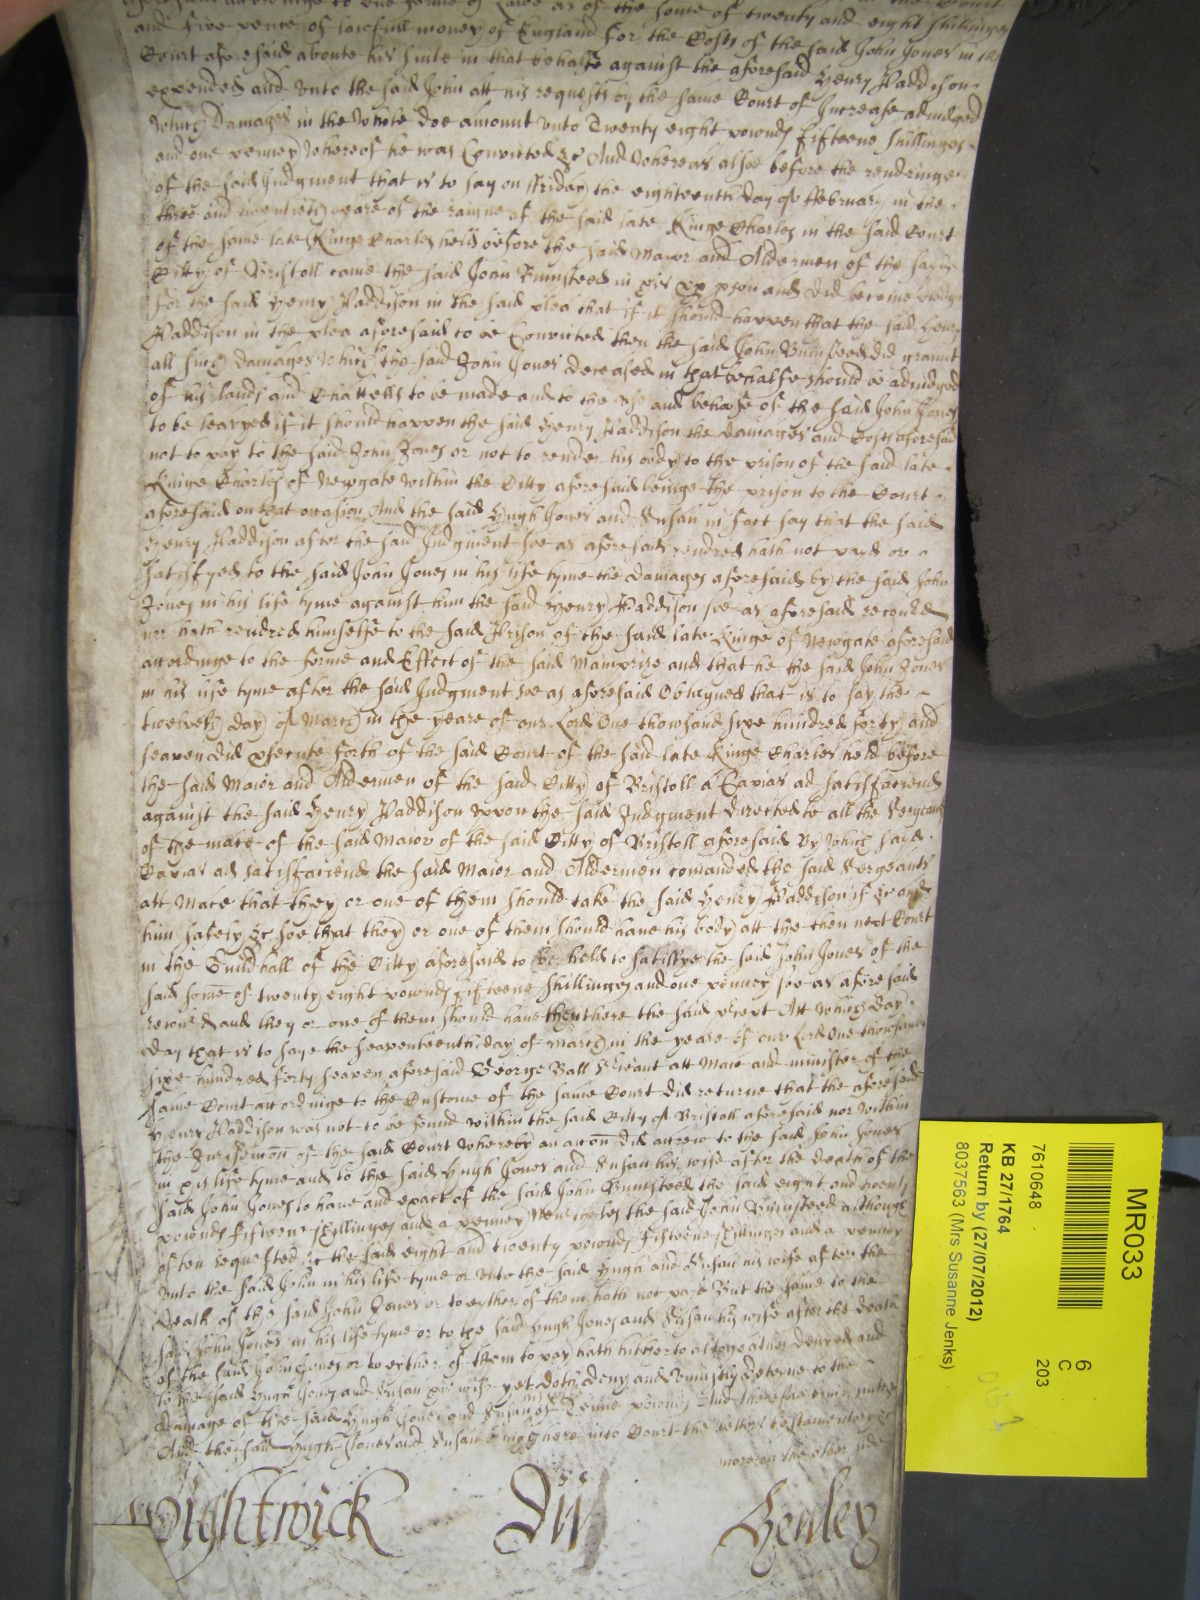 according to the forme of Lawe as of the some of twenty and eight shillinges
and five pence of lawfull money of England for the Costs of the said John Jones in the
Court aforesaid aboute his suite in that behalfe against the aforesaid Henry Paddison
expended and unto the said John att his requests by the same Court of Increase adiudged
which Damages in the whole doe amount unto Twenty eight pownds fifteene shillinges
and one penney whereof he was Convicted &c And whereas alsoe before the rendringe
of the said Judgment that is to say on ffriday the eighteenth day of ffebruary in the
three and twentieth yeare of the raigne of the said late Kinge Charles in the said Court
of the same late Kinge Charles held before the said Maior and Aldermen of the sayd
Citty of Bristoll came the said John Bumsteed in his pp pson and did become
for the said Henry Paddison in the said plea that if it should happen that the said Henry
Paddison in the plea aforesaid to be Convicted then the said John Bumsteed did graunt
all such damages which the said John Jones deceased in that behalfe should be adiudged
of his lands and Chattells to be made and to the use and behalfe of the said John Jones
to be leavyed if it should happen the said Henry Paddison the damages and Costs aforesaid
not to pay to the said John Jones or not to render his body to the prison of the said late
Kinge Charles of Newgate within the Citty aforesaid beinge the prison to the Court
aforesaid on that occasion And the said Hugh Jones and Susan in fact say that the said
Henry Paddison after the said Judgment soe as aforesaid rendred hath not payd or
satisfyed to the said John Jones in his life tyme the damages aforesaid by the said John
Jones in his life tyme against him the said Henry Paddison soe as aforesaid recoued
nor hath rendred himselfe to the said Prison of the said late Kinge of Newgate aforesaid
accordinge to the forme and Effect of the said Mainprize and that he the said John Jones
in his life tyme after the said Judgment soe as aforesaid Obtayned that is to say the
twelveth day of March in the yeare of our Lord One thowsand sixe hundred forty and
seaven did psecute forth of the said Court of the said late Kinge Charles held before
the said Maior and Aldermen of the said Citty of Bristoll a Capias ad satisffaciend
against the said Henry Paddison uppon the said Judgment directed to all the Sergeants
of the mace of the said Maior of the said Citty of Bristoll aforesaid By which sayd
Capias ad satisffaciend the said Maior and Aldermen comanded the said Sergeants
att Mace that they or one of them should take the said Henry Paddison if &c and
him safely &c soe that they or one of them should have his body att the then next Court
in the Guildhall of the Citty aforesaid to be held to satisfye the said John Jones of the
said some of twenty eight pownds fifteene shillinges and one penney soe as aforesaid
recou'd and they or one of them should have then there the said precept Att which day
day that is to saye the seaventeenth day of March in the yeare of our Lord One thowsand
sixe hundred forty seaven aforesaid George Ball Srieant att Mace and minister of the
same Court accordinge to the Custome of the same Court did returne that the aforesaid
Henry Paddison was not to be found within the said Citty of Bristoll aforesaid nor within
the Jurisdiccon of the said Court whereby an accon did accrew to the said John Jones
in his life tyme and to the said Hugh Jones and Susan his wife after the death of the
said John Jones to have and exact of the said John Bumsteed the said eight and twenty
pownds fifteene shillinges and a penney Neuertheles the said John Bumsteed although
often requested &c the said eight and twenty pownds fifteene shillinges and a penney
unto the said John in his life tyme or unto the said Hugh and Susan his wife after the
death of the said John Jones or to eyther of them hath not payd But the same to the
said John Jones in his life tyme or to the said Hugh Jones and Susan his wife after the death
of the said John Jones or to eyther of them to pay hath hitherto altogeather denyed and
to the said Hugh Jones and Susan his wife yet doth deny and Uniustly deteine to the
damage of the said Hugh Jones and Susan of Tenne pownds And therefore
And the said Hugh Jones and Susan bring here into Court the letters testamentary
more on the other side
Wightwick
Henley
MR033
6
C
203
7610648
KB 27/1764
Return by (27/07/2012)
8037563 (Mrs Susanne Jenks)